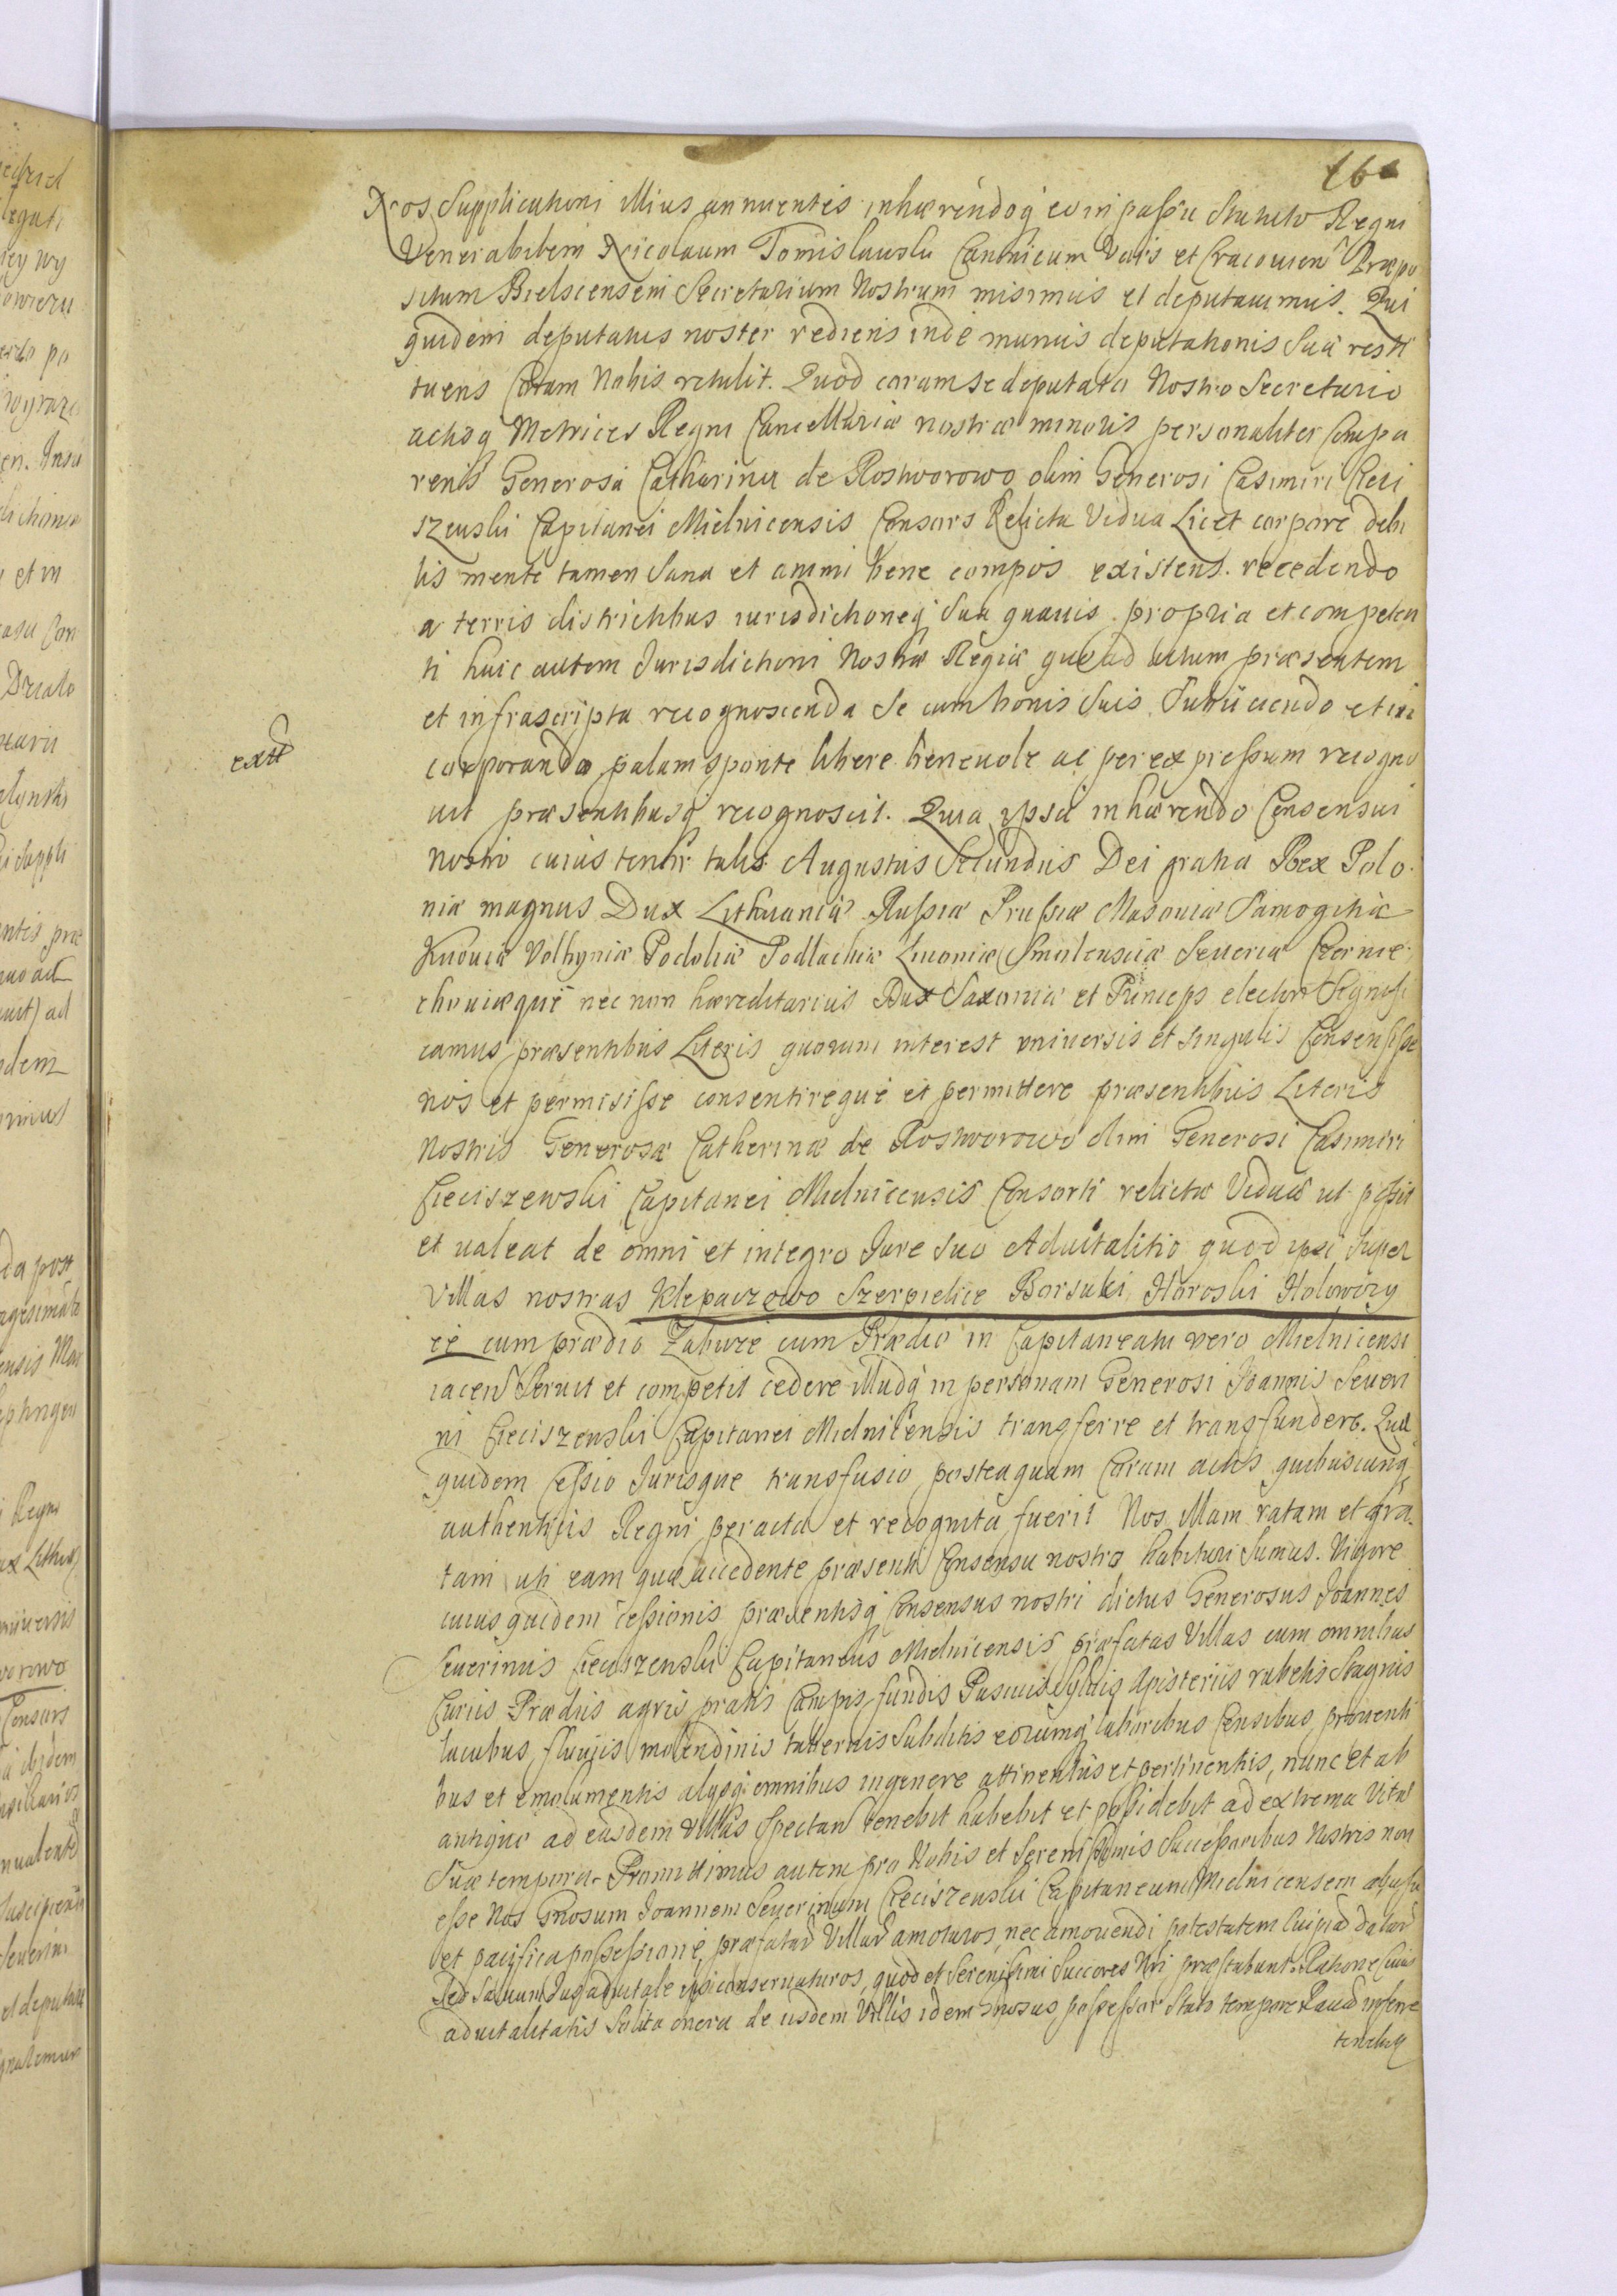 166
Nos Supplicationi illius annuentes inhærendoq eo in passu Statuto Regni
Venerabilem Nicolaum Tomislawski Canonicum Vars et Cracovien Præpo
situm Bielscensem Secretarium Nostrum misimus et deputavimus. Qui
quidem deputatus noster rediens inde munus deputationis Suæ resti
tuens Coram Nobis retulit. Quod coram se deputato Nostro Secretario
actisq Metrices Regni Cancellariæ nostræ minoris personaliter Compa
rens Generosa Catharina de Rostworowo olim Generosi Casimiri Cieci
szewski Capitanei Mielnicensis Consors Relicta Vidua Licet corpore debi
lis mente tamen Sana et animi bene compos existens. recedendo
a terris districtibus iurisdictioneq Sua quavis propria et competen
ti huic autem Jurisdictioni Nostræ Regiæ quo ad actum præsentem
et infrascripta recognoscenda Se cum bonis Suis Subiiciendo et in
corporando palam sponte libere benevole ac per expressum recogno
extt
vit præsentibusq recognoscit. Quia ipsa inhærendo Consensui
nostro cuius tenor talis Augustus Secundus Dei gratia Rex Polo
niæ magnus Dux Lithuaniæ Russiæ Prussiæ Masoviæ Samogitiæ
Kijoviæ Volhyniæ Podoliæ Podlachiæ Livoniæ Smolensciæ Severiæ Czernie
choviæque nec non hæreditarius Dux Saxoniæ et Princeps elector Signifi
camus præsentibus Literis quorum interest universis et singulis Consensisse
nos et permisisse consentireque et permittere præsentibus Literis
nostris Generosæ Catherinæ de Rostworowo olim Generosi Casimiri
Cieciszewski Capitanei Mielnicensis Consorti relictæ Viduæ ut possit
et valeat de omni et integro Jure suo Advitalitio quod ipsi super
Villas nostras Klepaczewo Szerpielice Borsuki Horoski Holowczy
ce cum prædio Zabuże cum Prædio in Capitaneatu vero Mielnicensi
iacen Servit et competit cedere illudq in personam Generosi Joannis Severi
ni Cieciszewski Capitanei Mielnicensis transferre et transfundere. Quæ
quidem Cessio Jurisque transfusio posteaquam Coram actis quibuscunq
authenticis Regni peracta et recognita fuerit Nos illam ratam et gra
tam uti eam quæ accedente præsenti Consensu nostro habituri Sumus. Vigore
cuius quidem cessionis præsentisq Consensus nostri dictus Generosus Joannes
Severinus Cieciszewski Capitaneus Mielnicensis præfatas Villas cum omnibus
Curiis Prædiis agris pratis Campis fundis Pascuis Sylvis Apisteriis rubetis Stagnis
lacubus fluviis molendinis tabernis Subditis eorumq laboribus Censibus proventi
bus et emolumentis aliisq omnibus in genere attinentiis et pertinentiis, nunc et ab
antiquo ad easdem Villas Spectan tenebit habebit et possidebit ad extrema Vitæ
Suæ tempora. Promittimus autem pro Nobis et Serenissimis Successoribus Nostris non
esse Nos Gnosum Joannem Severinum Cieciszewski Capitaneum Mielnicensem ab usu
et pacifica possessione præfatar Villar amoturos, nec amovendi potestatem cuipiam daturos
Sed Salvum Jus advitale ipsi conservaturos, quod et Serenissimi Succores Nri præstabunt. Ratione Cuius
advitalitatis Solita onera de iisdem Villis idem Gnosus possessor Stato tempore inferre
tenebit